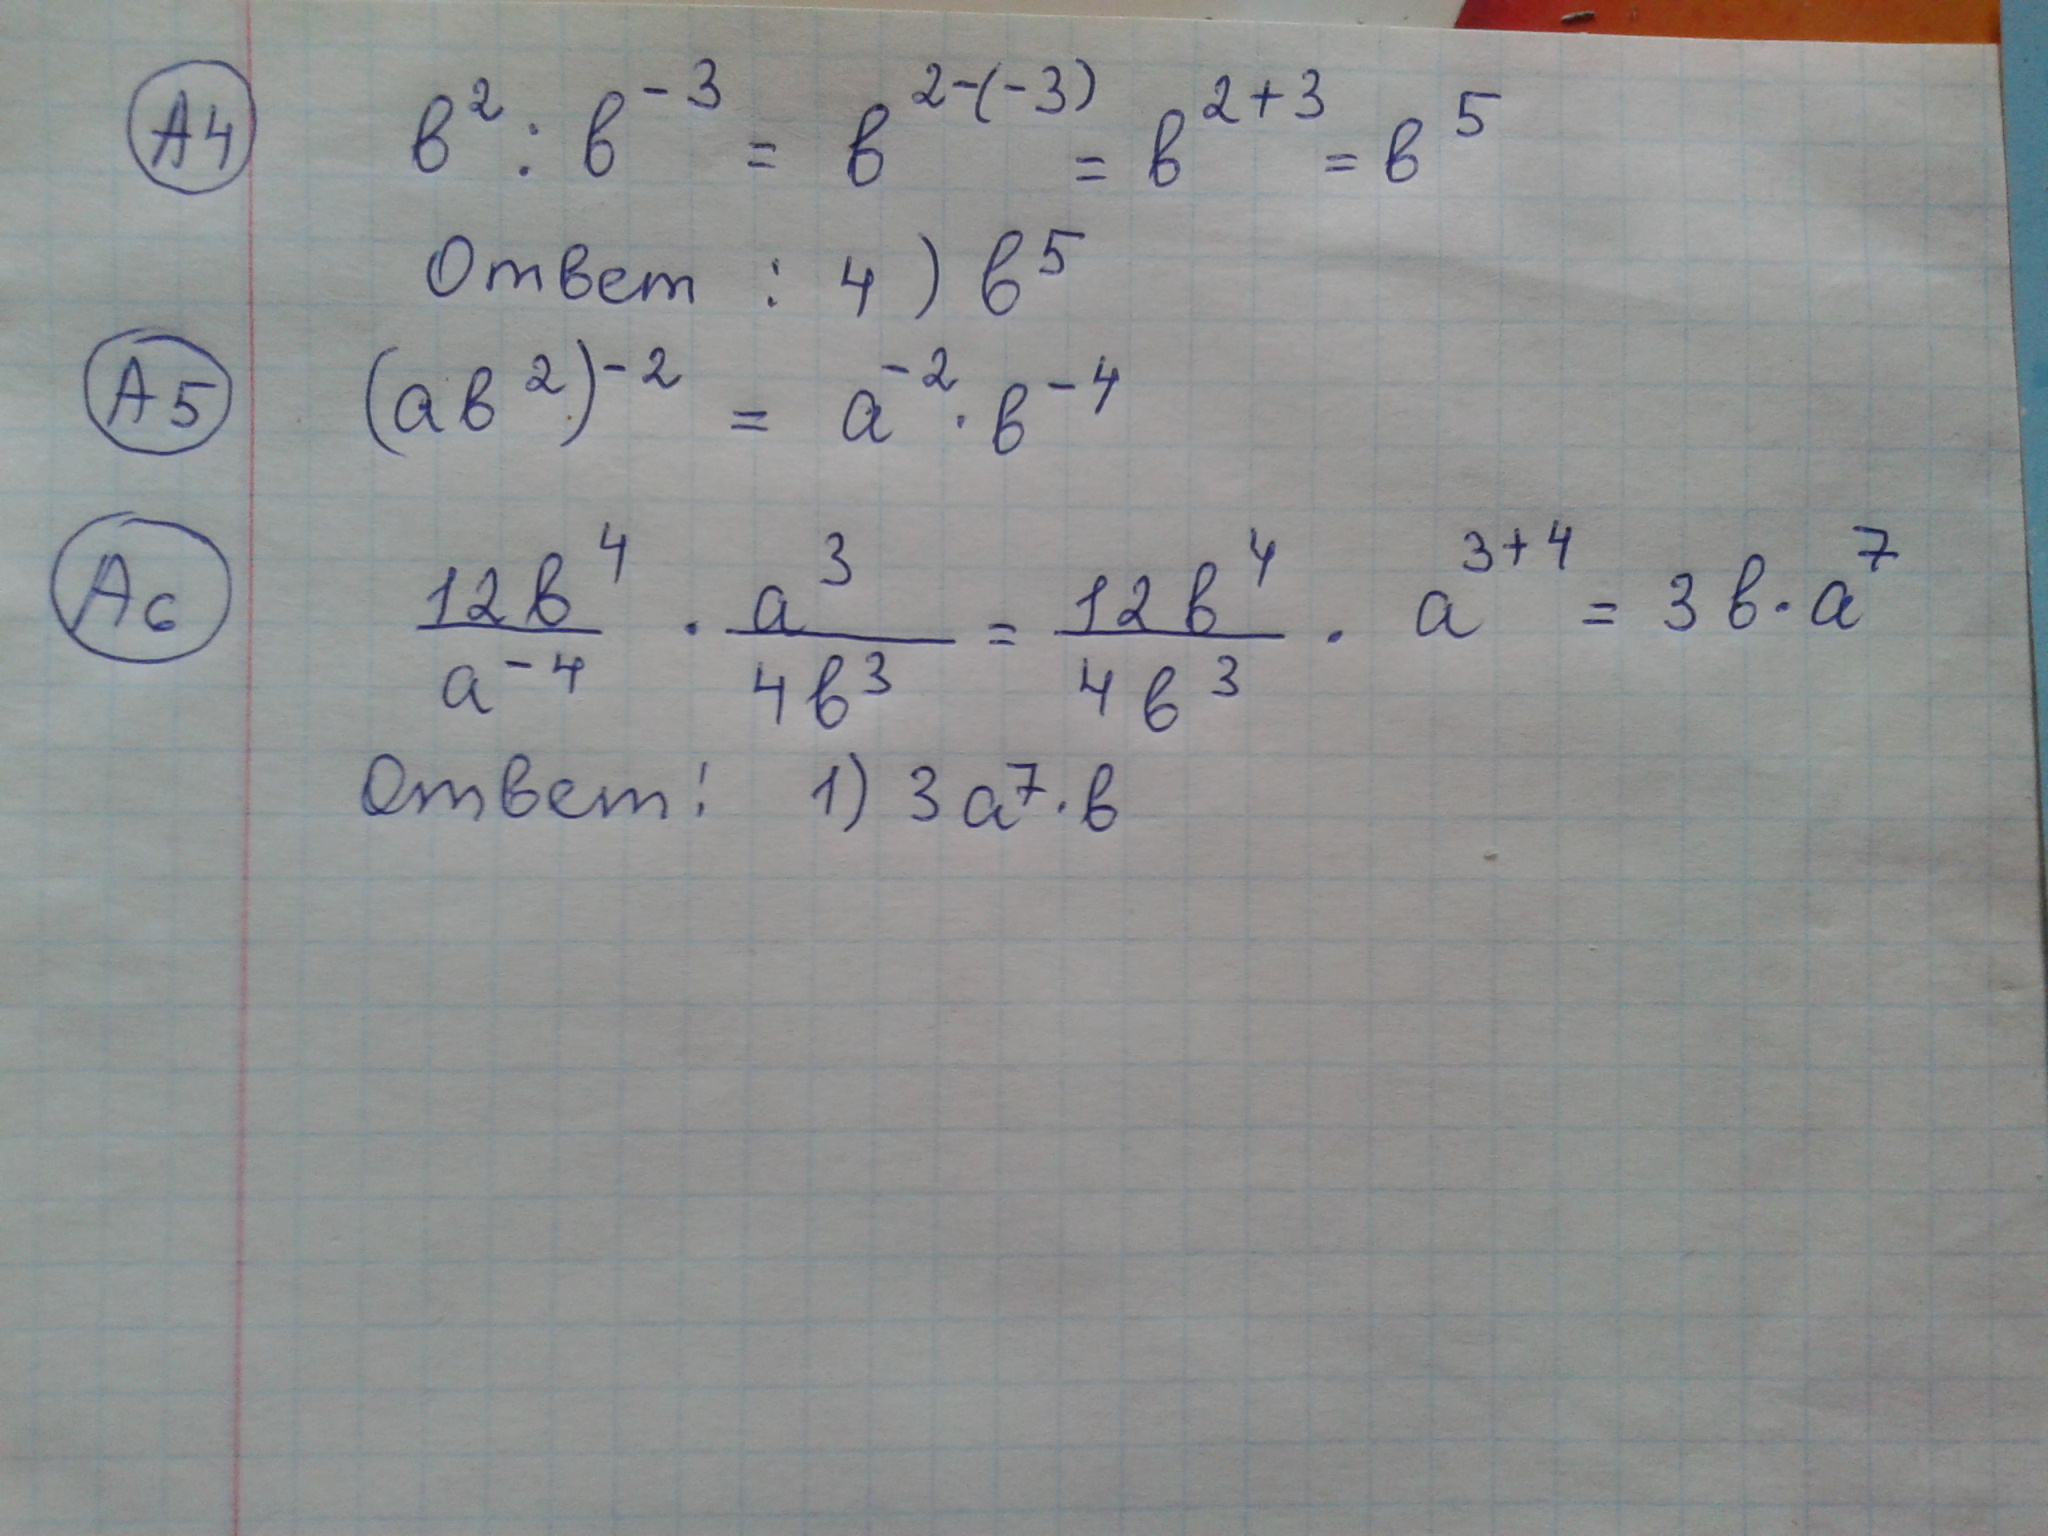 А4 в² : в⁻³ = в²⁻⁽⁻³⁾ = в²⁺³ = в⁵
Ответ : 4) в⁵
А5 (ав²)⁻² = а⁻² · в⁻⁴
А6 12в⁴/а⁻⁴ · а³/4в³ = 12в⁴/4в³ · а³⁺⁴ = 3в · а⁷
Ответ: 1) 3а⁷ · в